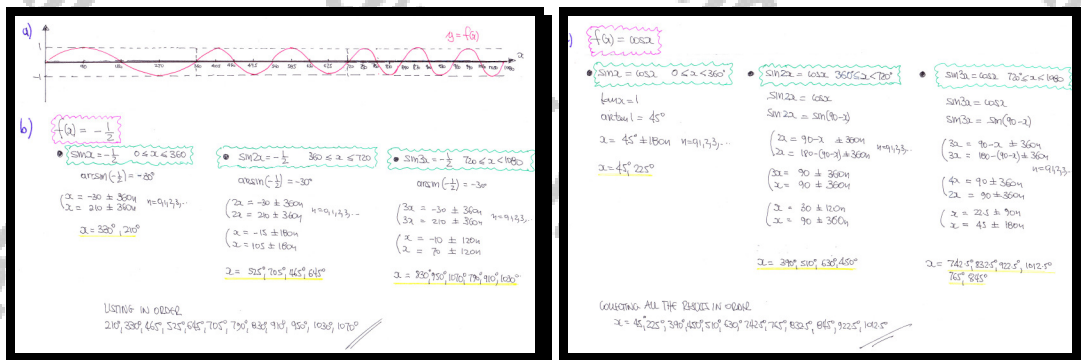 a)
y = f(x)
1
-1
x
90 180 270
b)
f(x) = -1/2
• sinx = -1/2 0 ≤ x ≤ 360
arcsin(-1/2) = -30°
(x = -30 ± 360n
(x = 210 ± 360n n=0,1,2,3,...
x = 330°, 210°
• sin2x = -1/2 360 ≤ x ≤ 720
arcsin(-1/2) = -30°
(2x = -30 ± 360n
(2x = 210 ± 360n n=0,1,2,3,...
(x = -15 ± 180n
(x = 105 ± 180n
x = 525°, 705°, 465°, 645°
• sin3x = -1/2 720 ≤ x < 1080
arcsin(-1/2) = -30
(3x = -30 ± 360n
(3x = 210 ± 360n n=0,1,2,3,...
(x = -10 ± 120n
(x = 70 ± 120n
x = 830°, 950°, 1070°, 790°, 910°, 1030°
LISTING IN ORDER
210°, 330°, 465°, 525°, 645°, 705°, 790°, 830°, 910°, 950°, 1030°, 1070°
f(x) = cosx
• sinx = cosx 0 ≤ x < 360°
tanx = 1
arctan1 = 45°
x = 45° ± 180n n=0,1,2,3,...
x = 45°, 225°
• sin2x = cosx 360 ≤ x < 720°
sin2x = cosx
sin2x = sin(90-x)
(2x = 90-x ± 360n
(2x = 180-(90-x) ± 360n n=0,1,2,3,...
(3x = 90 ± 360n
(x = 90 ± 360n
(x = 30 ± 120n
(x = 90 ± 360n
x = 390°, 510°, 630°, 450°
• sin3x = cosx 720° ≤ x ≤ 1080
sin3x = cosx
sin3x = sin(90-x)
(3x = 90-x ± 360n
(3x = 180-(90-x) ± 360n
n=0,1,2,3,...
(4x = 90 ± 360n
(2x = 90 ± 360n
(x = 22.5 ± 90n
(x = 45 ± 180n
x = 742.5°, 832.5°, 922.5°, 1012.5°
765°, 845°
COLLECTING ALL THE RESULTS IN ORDER
x = 45°, 225°, 390°, 450°, 510°, 630°, 742.5°, 765°, 832.5°, 845°, 922.5°, 1012.5